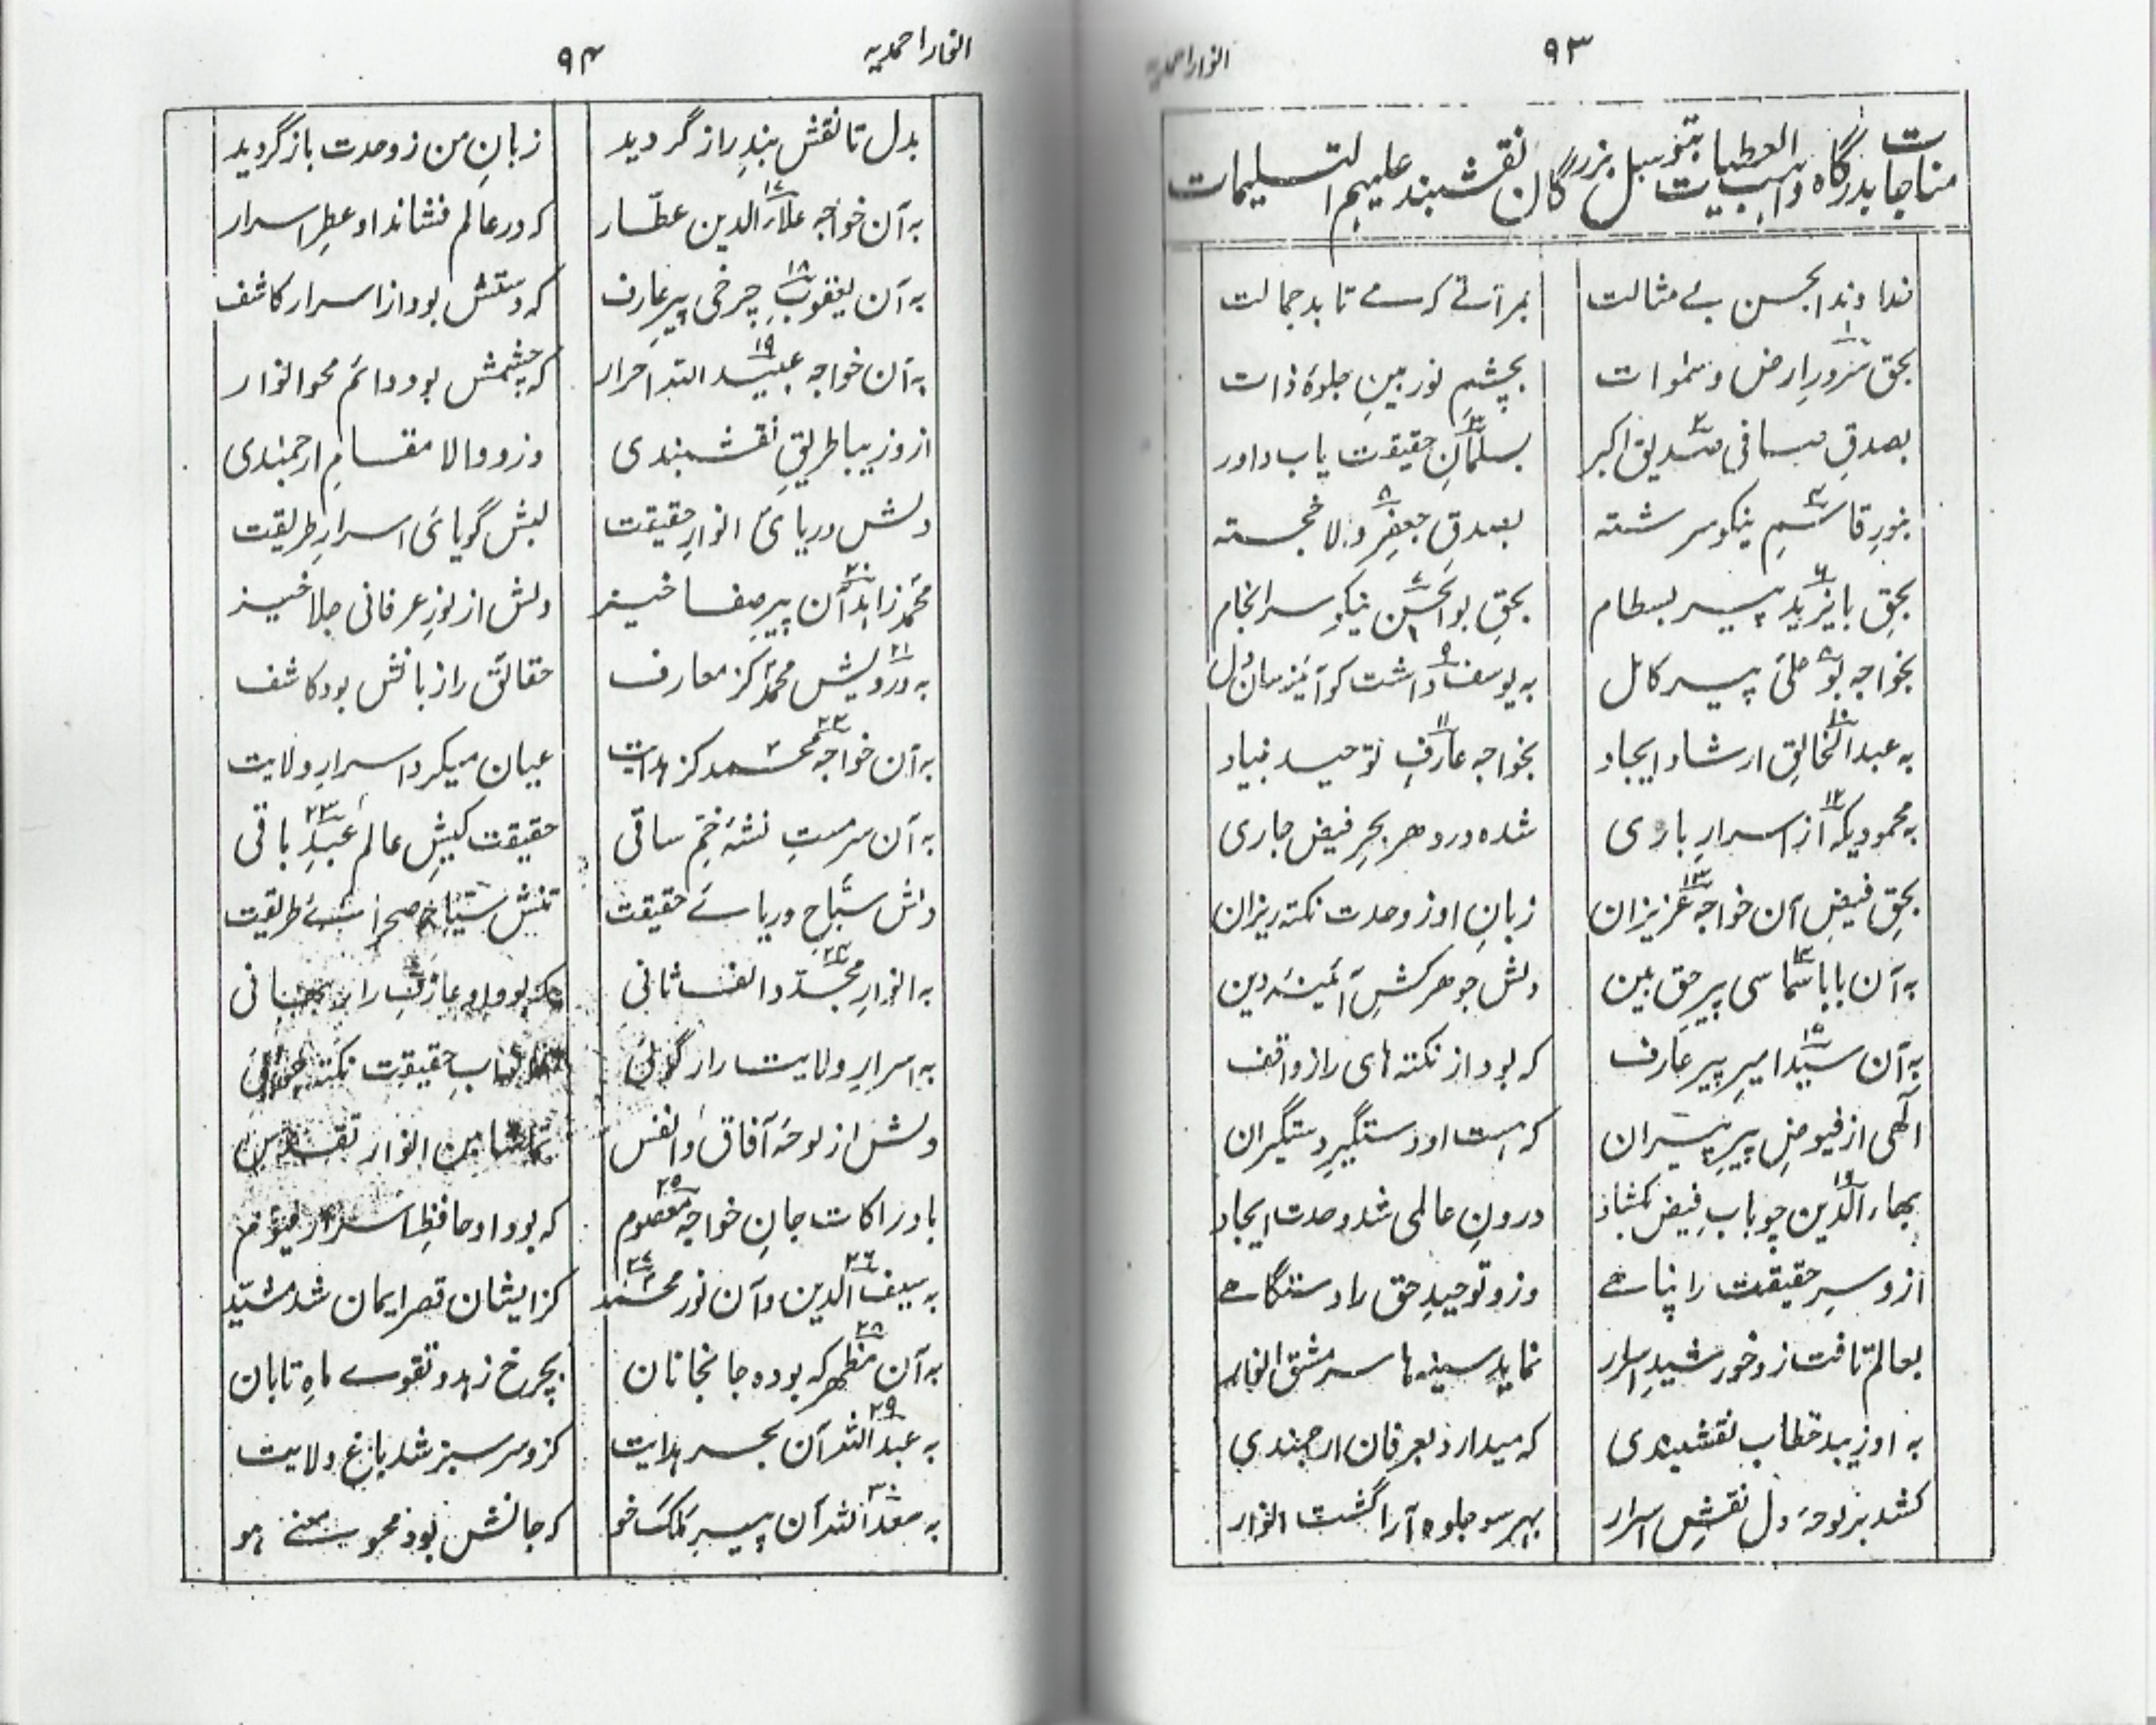 انوار احمدیه
۹۳
مناجات بدرگاه واهب العطیات بتوسل بزرگان نقشبند علیهم التسلیمات
خداوندا بحسن بے مثالت
بمرآتے کہ مے تابد جمالت
بحق سرور ارض و سموات
بچشم نوربین جلوۂ ذات
بصدق صافی صدیق اکبر
بسلمان حقیقت یاب داور
بنور قاسم نیکو سرشته
بصدق جعفر والا خجسته
بحق بایزید پیر بسطام
بحق بوالحسن نیکو سرانجام
بخواجه بوعلی پیر کامل
به یوسف داشت کو آئینه سان دل
به عبدالخالق ارشاد ایجاد
بخواجه عارف توحید بنیاد
به محمودیکه از اسرار باری
شده در دهر بحر فیض جاری
بحق فیض آن خواجه عزیزان
زبان او ز وحدت نکته ریزان
به آن بابا سماسی پیر حق بین
دلش جوهرکش آئینۂ دین
به آن سید امیر پیر عارف
که بود از نکته های راز واقف
الٰهی از فیوض پیر پیران
که هست او دستگیر دستگیران
بهاء الدین چو باب فیض بکشاد
درون عالمی شد وحدت ایجاد
ازو سر حقیقت را پناهے
وزو توحید حق را دستگاهے
بعالم تافت زو خورشید اسرار
نماید سینه ها سرمشق انوار
به او زیبد خطاب نقشبندی
که میدارد بعرفان ارجمندی
کشد بر لوحۂ دل نقش اسرار
بهر سو جلوه آرا گشت انوار
انوار احمدیه
۹۴
بدل تا نقش بند راز گردید
زبان من ز وحدت باز گردید
۱۷
به آن خواجه علاء الدین عطّار
که در عالم فشانداو عطر اسرار
۱۸
به آن یعقوب چرخی پیر عارف
که دستش بود از اسرار کاشف
۱۹
به آن خواجه عبید الله احرار
که چشمش بود دائم محو انوار
ازو زیبا طریق نقشبندی
وزو والا مقام ارجمندی
دلش دریائ انوار حقیقت
لبش گویائ اسرار طریقت
۲۰
محمد زاهد آن پیر صفا خیز
دلش از نور عرفانی جلا خیز
۲۱
به درویش محمد کز معارف
حقائق را زبانش بود کاشف
۲۲
به آن خواجه محمد کز هدایت
عیان میکرد اسرار ولایت
به آن سرمست نشۂ خم ساقی
حقیقت کیش عالم عبد باقی
۲۳
دلش سبّاح دریائے حقیقت
تنش سیّاح صحرائے طریقت
۲۴
به انوار مجدّد الف ثانی
که بود او
به اسرار ولایت راز گوئی
کتاب حقیقت نکته
دلش از لوحۂ آفاق و انفس
تماشا بین انوار تقدس
۲۵
بادراکات جان خواجه معصوم
که بود او حافظ اسرار قیّوم
۲۶ ۲۷
به سیف الدین و آن نور محمد
کز ایشان قصر ایمان شد مشیّد
۲۸
به آن مظهر که بوده جانجانان
بچرخ زهد و تقوے ماه تابان
۲۹
به عبدالله آن بحر هدایت
کزو سر سبز شد باغ ولایت
۳۰
به سعد الله آن پیر ملک خو
که جانش بود محو معنے هو